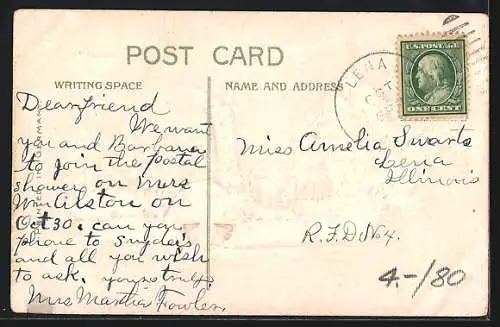 POST CARD
WRITING SPACE
NAME AND ADDRESS
LENA
OCT
U.S. POSTAGE
ONE CENT
Dear friend
We want
you and Barbara
to join the postal
shower on Mrs
Wm Alston on
Oct 30. can you
phone to Snyders
and all you wish
to ask. yours truly,
Mrs Martha Fowler
Miss Amelia Swartz
Lena
Illinois
R.F.D No 4.
4.-/80
GERMANY